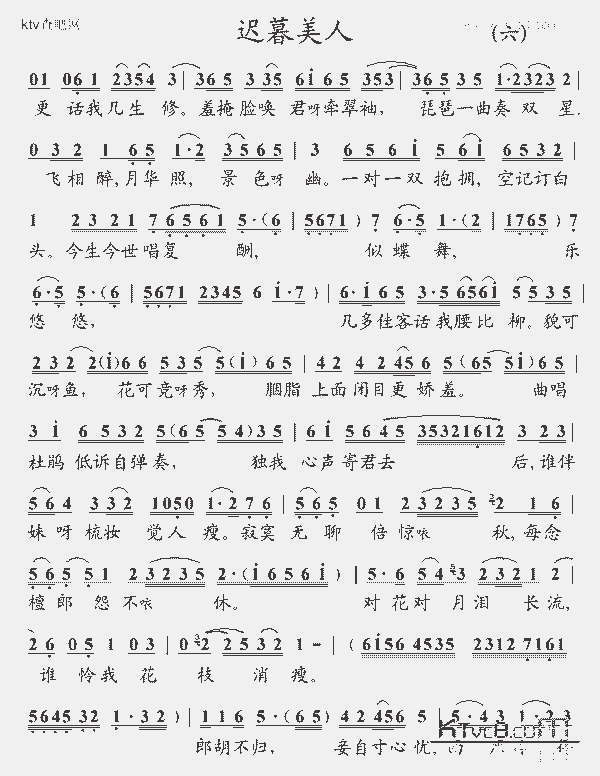 迟暮美人
(六)
01 061 2354 3 | 365 335 6i65 353 | 36535 5 1·2323 2 |
更 话我几生 修。羞掩脸唤 君呀牵翠袖, 琵琶一曲奏 双 星.
0 32 1 65 1·2 3565 | 3 656i 56i 6532 |
飞相醉,月华 照, 景 色呀 幽。一对一双 抱拥, 空记订白
1 2321 76561 5·(6 | 5671) 7 6·5 1·(2 | 1765) 7
头。今生今世唱复 酬, 似 蝶 舞, 乐
6·5 5·(6 | 5671 2345 6 i·7) | 6·i65 3·5656i 5535 |
悠 悠, 几多佳客话我腰比 柳。貌可
232 2(i)66 535 5(i)65 | 42 42456 5(65 5i)65 |
沉呀鱼, 花可竞呀秀, 胭脂 上面 闭目更 娇羞。 曲唱
3 i 6532 5(65 54)35 | 6i 5645 35321612 3 23 |
杜鹃 低诉自弹奏, 独我 心声寄君去 后,谁伴
564 332 1050 1·276 | 565 01 23235 2 16 |
妹 呀 梳妆 觉人 瘦。寂寞 无 聊 倍 惊咴 秋,每念
565 51 23235 2·(i 656i) | 5·6 453 2321 2 |
檀 郎 怨 不咴 休。 对 花对 月泪 长流,
2605 1 03 | 02 2532 1-) | (6i56 4535 2312 7161 |
谁 怜我 花 枝 消 瘦。
5645 32 1·3 32) | 03 2(i 65) 42 456 5
郎胡不归, 妾自寸心忧,